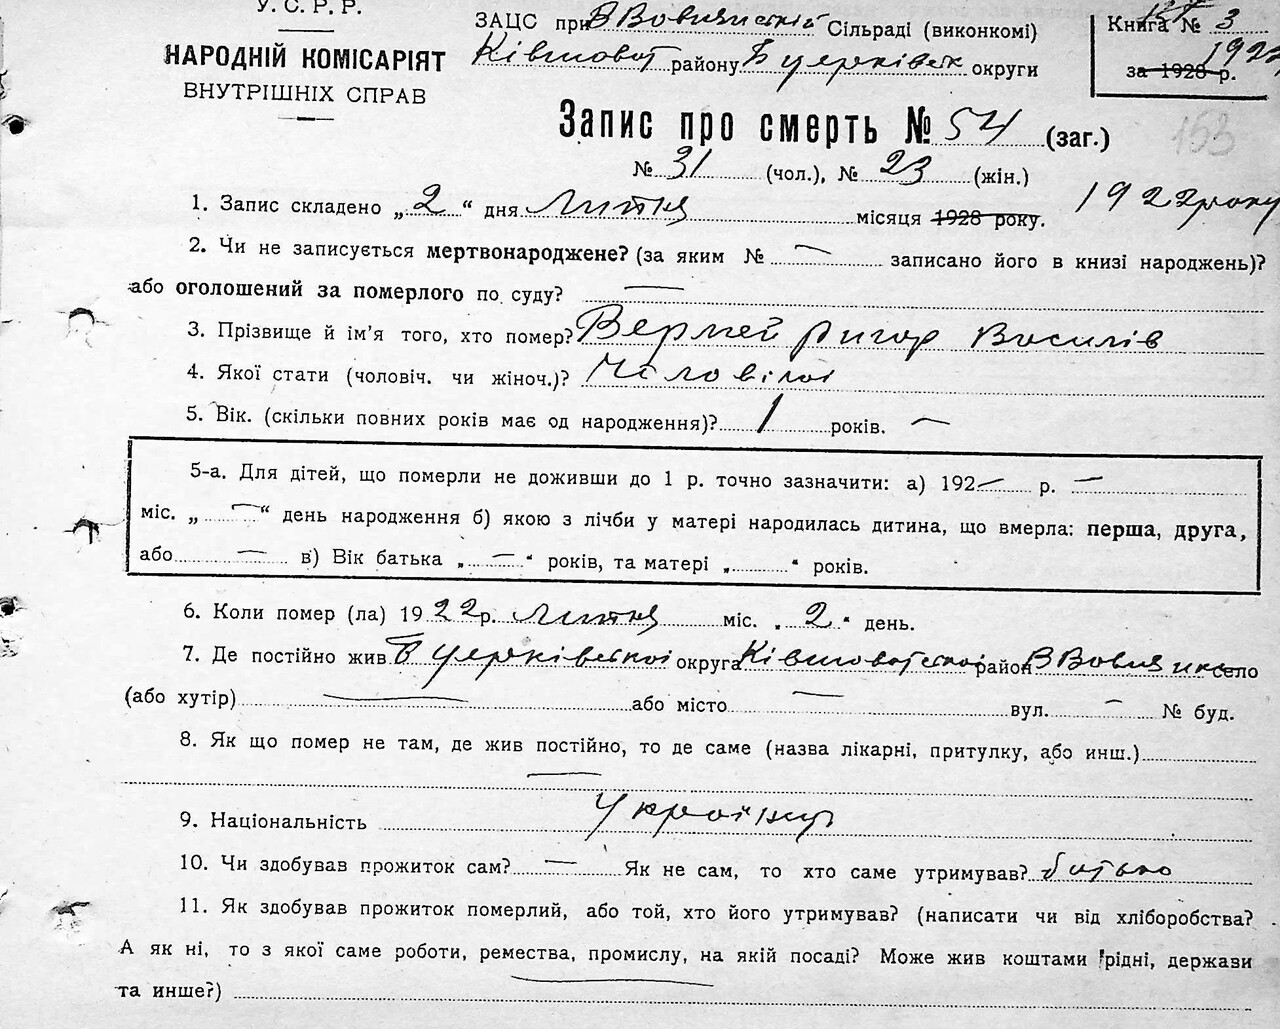 У. С. Р. Р.
НАРОДНІЙ КОМІСАРІЯТ
ВНУТРІШНІХ СПРАВ
ЗАЦС при В Вовнянській Сільраді (виконкомі)
району Б Церківськ округи
Книга № 3
за 1928 р. 1922
Запис про смерть № 54 (заг.)
153
№ 31 (чол.), № 23 (жін.)
1. Запис складено „2“ дня Лютня місяця 1928 року. 1922 року
2. Чи не записується мертвонароджене? (за яким № — записано його в книзі народжень)?
або оголошений за померлого по суду? —
3. Прізвище й ім’я того, хто помер? Вермей Ригор Василів
4. Якої стати (чоловіч. чи жіноч.)? Чоловічої
5. Вік. (скільки повних років має од народження)? 1 років. —
5-а. Для дітей, що померли не доживши до 1 р. точно зазначити: а) 192— р. —
міс. „ — “ день народження б) якою з лічби у матері народилась дитина, що вмерла: перша, друга,
або — в) Вік батька „ — “ років, та матері „ “ років.
6. Коли помер (ла) 1922 р. Лютня міс. „2“ день.
7. Де постійно жив Б Церківської округа район село
(або хутір) — або місто — вул. — № буд.
8. Як що помер не там, де жив постійно, то де саме (назва лікарні, притулку, або инш.)
—
9. Національність Українці
10. Чи здобував прожиток сам? — Як не сам, то хто саме утримував? батько
11. Як здобував прожиток померлий, або той, хто його утримував? (написати чи від хліборобства?
А як ні, то з якої саме роботи, ремества, промислу, на якій посаді? Може жив коштами рідні, держави
та инше?) —